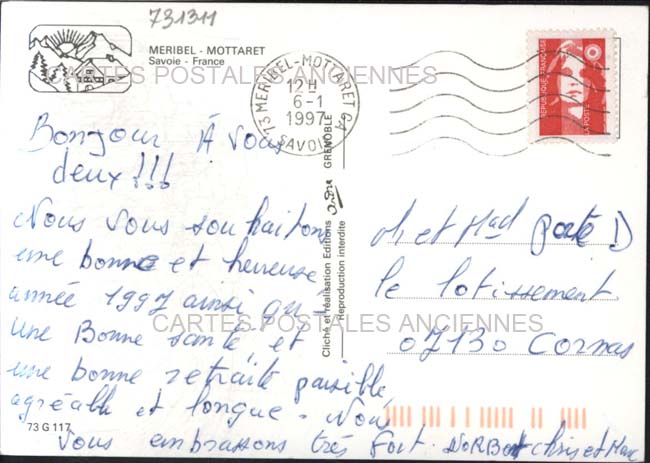 731311
MERIBEL - MOTTARET
Savoie - France
CARTES POSTALES ANCIENNES
73 MERIBEL-MOTTARET GA
12 H
6-1
1997
SAVOIE
REPUBLIQUE FRANÇAISE
LA POSTE
Bonjour À Vous
deux !!!
Nous vous souhaitons
une bonne et heureuse
année 1997 ainsi qu'
une Bonne santé et
une bonne retraite paisible
agréable et longue - Nous
Vous embrassons très fort. NORBert chris et Marc
Cliché et réalisation Editions GRENOBLE
Reproduction interdite
M et Mad porte D
le lotissement
07130 Cornas
CARTES POSTALES ANCIENNES
73 G 117